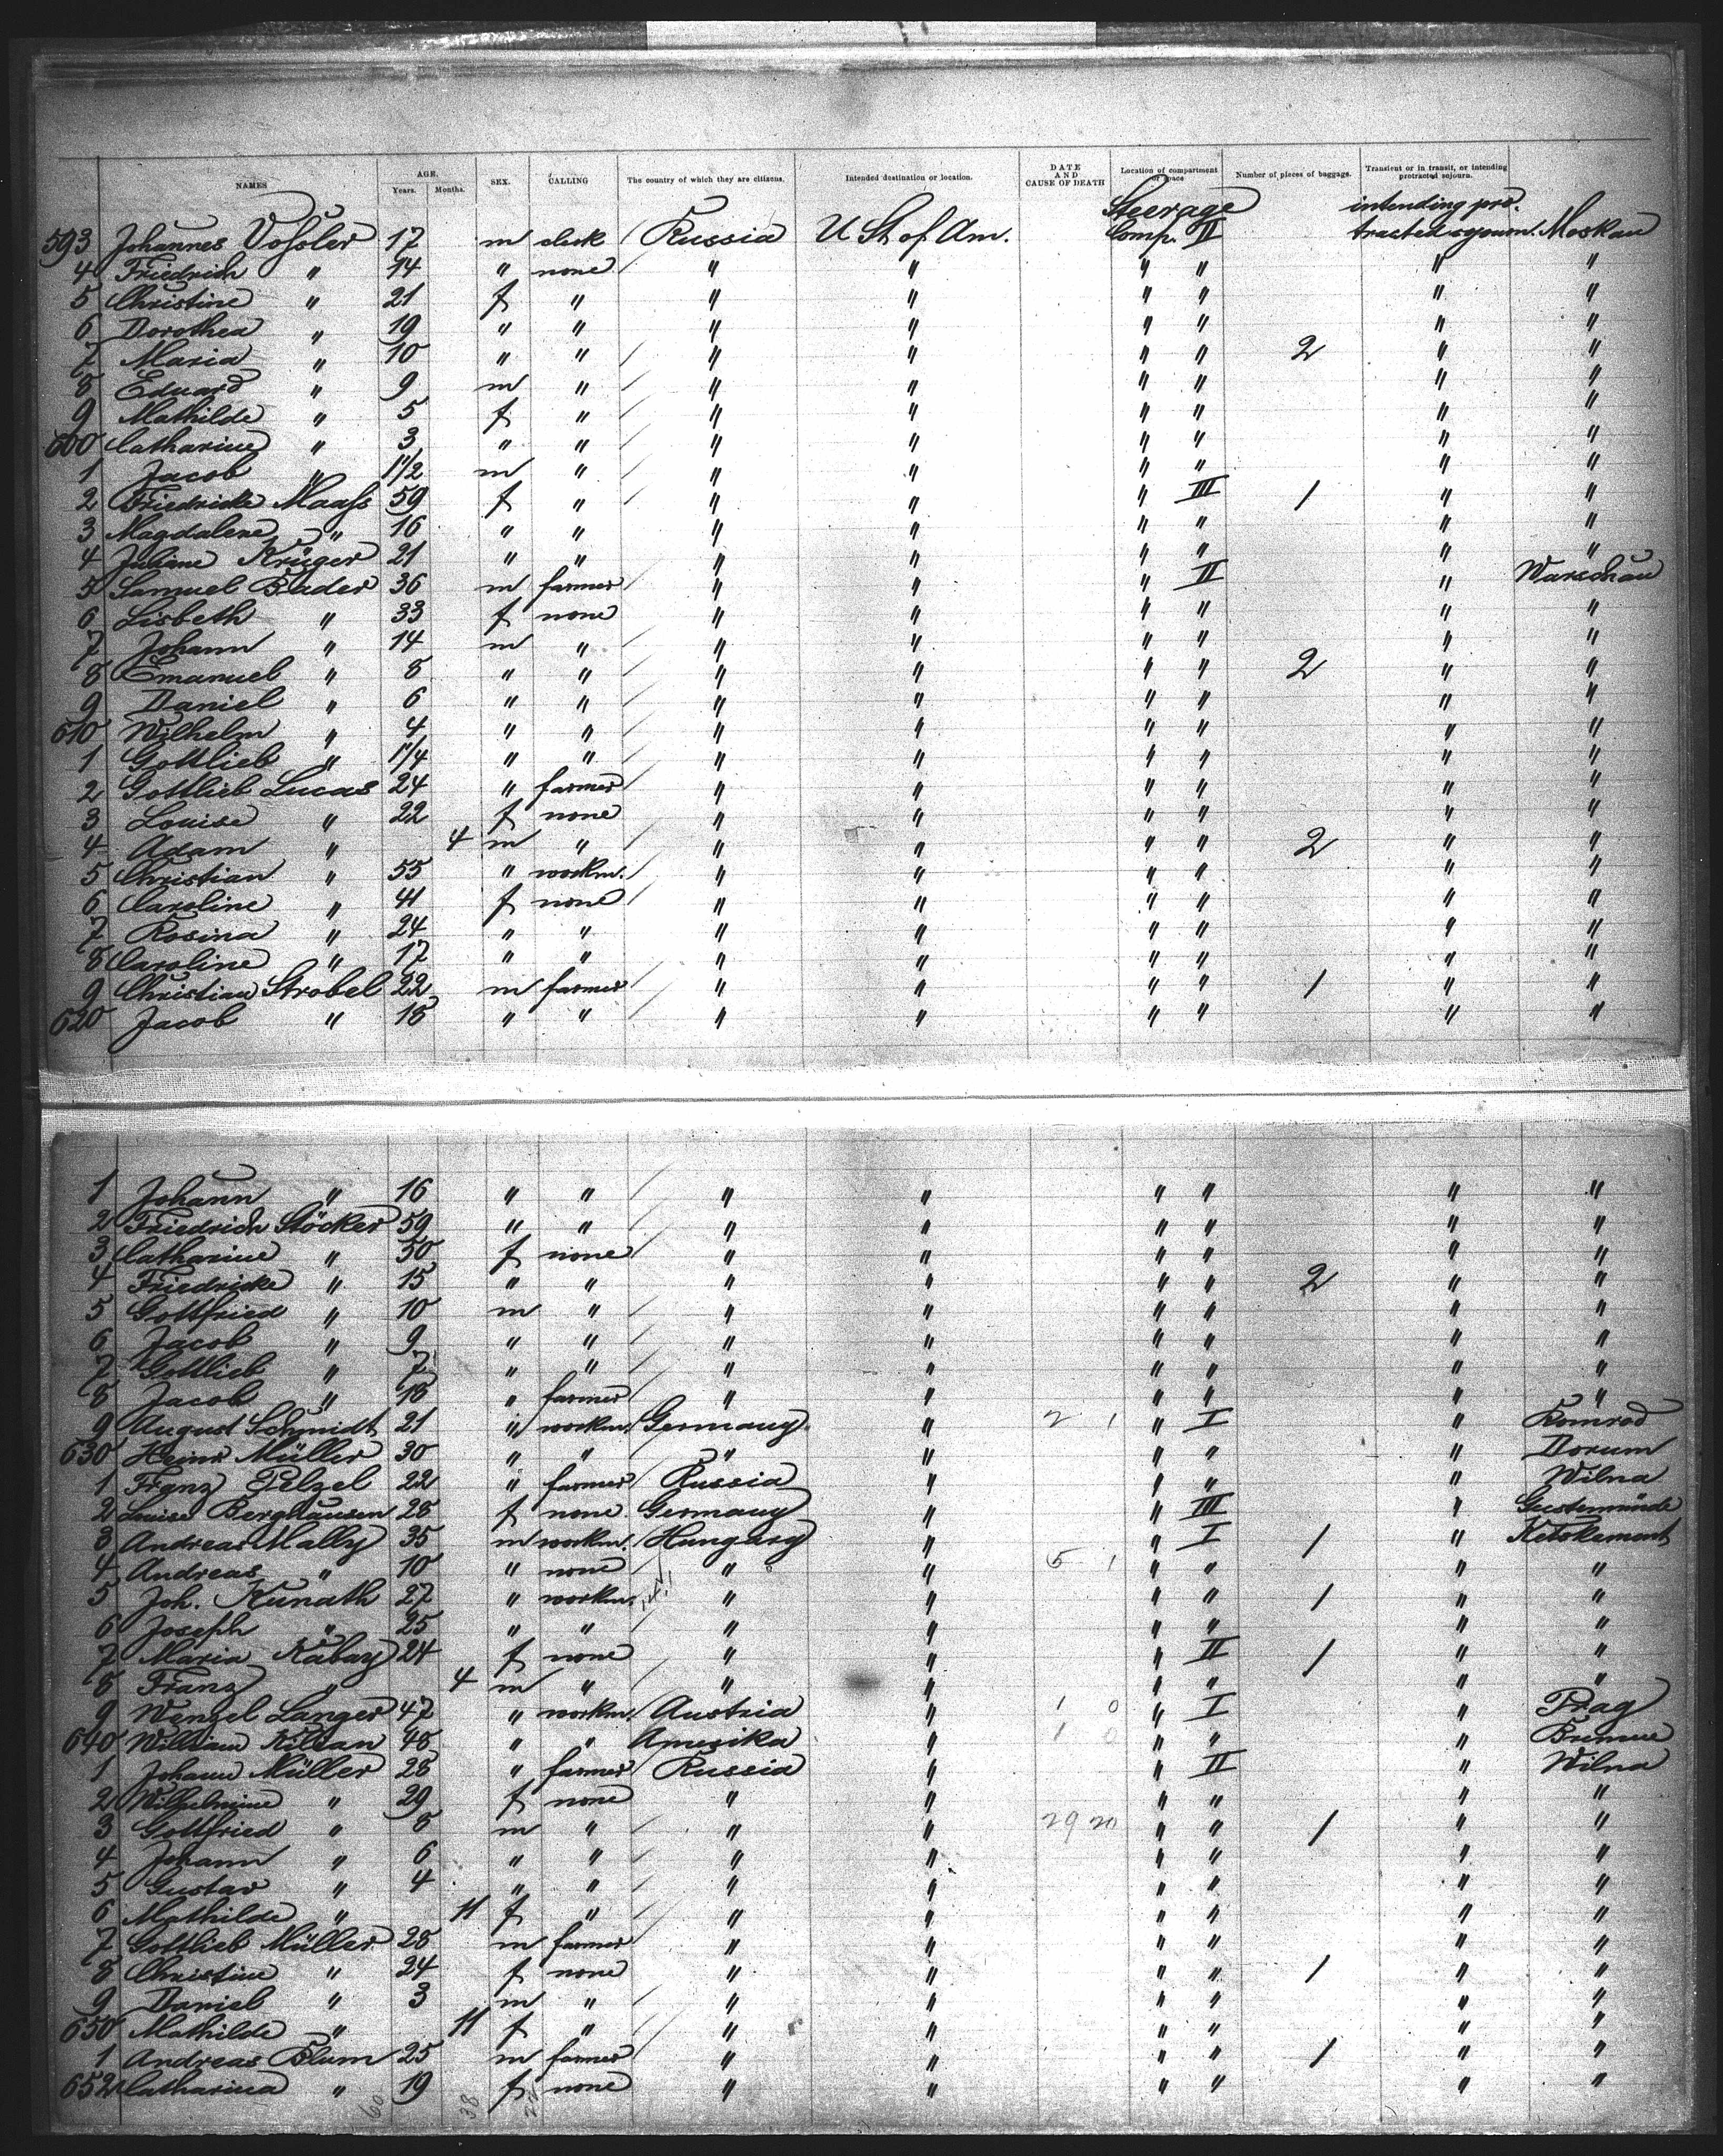 NAMES AGE. Years. Months. SEX. CALLING The country of which they are citizens. Intended destination or location. DATE AND CAUSE OF DEATH Location of compartment or space Number of pieces of baggage. Transient or in transit, or intending protracted sojourn.
Steerage intending pro-
593 Johannes Voſsler 17 m clerk Russia U St of Am. Comp. II tracted sojourn. Moskau
4 Friedrich " 14 " none " " " " " "
5 Christine " 21 f " " " " " " "
6 Dorothea " 19 " " " " " " " "
7 Maria " 10 " " " " " " 2 " "
8 Eduard " 9 m " " " " " " "
9 Mathilde " 5 f " " " " " " "
600 Catharine " 3 " " " " " " " "
1 Jacob " 1 1/2 m " " " " " " "
2 Friedricke Maaſs 59 f " " " " III 1 " "
3 Magdalene " 16 " " " " " " " "
4 Juliane Krüger 21 " " " " " " " "
5 Samuel Bader 36 m farmer " " " II " Warschau
6 Lisbeth " 33 f none " " " " " "
7 Johann " 14 m " " " " " " "
8 Emanuel " 8 " " " " " " 2 " "
9 Daniel " 6 " " " " " " " "
610 Wilhelm " 4 " " " " " " " "
1 Gottlieb " 1 1/4 " " " " " " " "
2 Gottlieb Lucas 24 " farmer " " " " " "
3 Louise " 22 f none " " " " " "
4 Adam " 4 m " " " " " 2 " "
5 Christian " 55 " workm. " " " " " "
6 Caroline " 41 f none " " " " " "
7 Rosina " 24 " " " " " " " "
8 Caroline " 17 " " " " " " " "
9 Christian Strobel 22 m farmer " " " " 1 " "
620 Jacob " 18 " " " " " " " "
1 Johann " 16 " " " " " " " "
2 Friedrich Stöcker 59 " " " " " " " "
3 Catharine " 50 f none " " " " " "
4 Friedricke " 15 " " " " " " 2 " "
5 Gottfried " 10 m " " " " " " "
6 Jacob " 9 " " " " " " " "
7 Gottlieb " 7 " " " " " " " "
8 Jacob " 18 " farmer " " " " " "
9 August Schmidt 21 " workm. Germany " 2 1 " I " Romrod
630 Heinr Müller 30 " " " " " " " Dorum
1 Franz Pelzel 22 " farmer Russia " " " " Wilna
2 Louise Berghausen 28 f none Germany " " III " Geestemünde
3 Andreas Mally 35 m workm. Hungary " " I 1 " Ketskement
4 Andreas " 10 " none " " 5 1 " " " "
5 Joh. Kunath 27 " workm. " " " " 1 " "
6 Joseph " 25 " " " " " " " "
7 Maria Kabay 24 f none " " " II 1 " "
8 Franz " 4 m " " " " " " "
9 Wenzel Langer 47 " workm. Austria " 1 0 " I " Prag
640 William Kilian 48 " " Amerika " 1 0 " " " Bremen
1 Johann Müller 28 " farmer Russia " " II " Wilna
2 Wilhelmine " 29 f none " " " " " "
3 Gottfried " 8 m " " " 29 20 " " 1 " "
4 Johann " 6 " " " " " " " "
5 Gustav " 4 " " " " " " " "
6 Mathilde " 11 f " " " " " " "
7 Gottlieb Müller 28 m farmer " " " " " "
8 Christine " 24 f none " " " " 1 " "
9 Daniel " 3 m " " " " " " "
650 Mathilde " 11 f " " " " " " "
1 Andreas Blum 25 m farmer " " " " 1 " "
652 Catharina " 19 f none " " " " " "
60 38